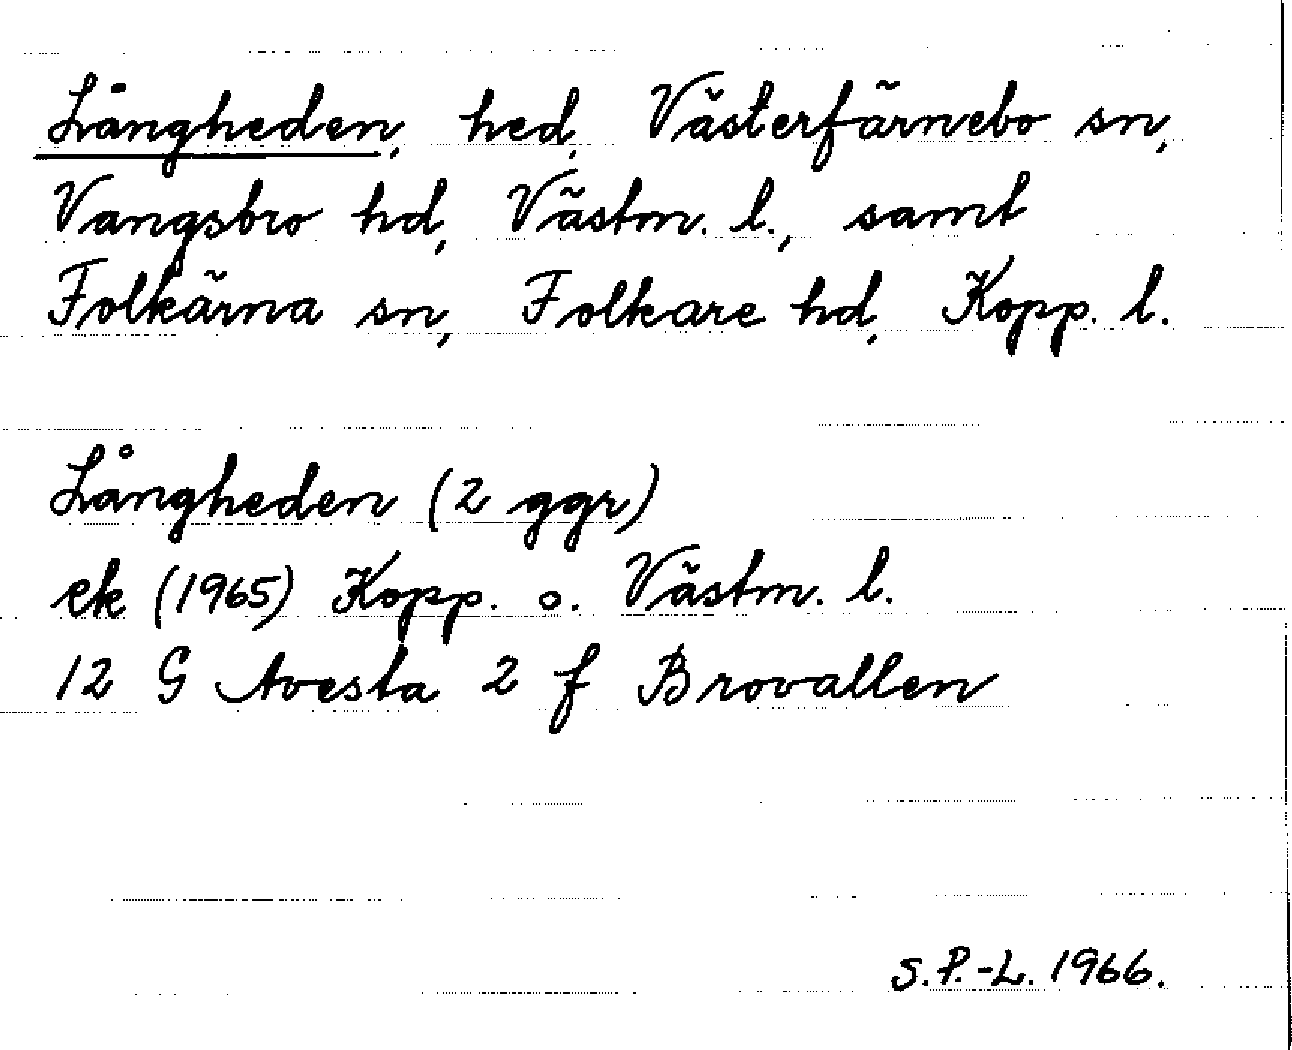 Långheden, hed, Västerfärnebo sn,
Vangsbro hd, Västm. l., samt
Folkärna sn, Folkare hd, Kopp. l.
Långheden (2 ggr)
ek (1965) Kopp. o. Västm. l.
12 G Avesta 2 f Brovallen
S.P.-L. 1966.